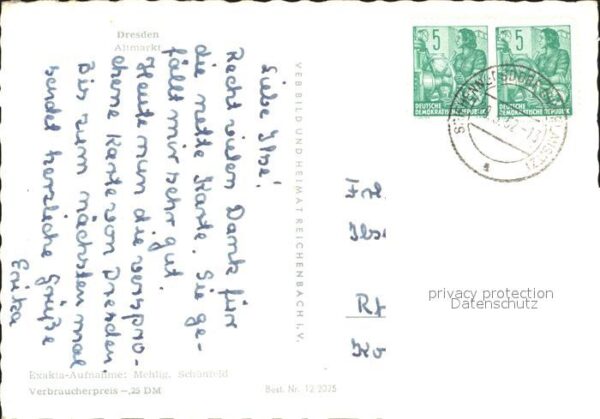 Dresden
Altmarkt
Liebe Ilse!
Recht vielen Dank für
die nette Karte. Sie ge-
fällt mir sehr gut.
Heute nun die verspro-
chene Karte von Dresden.
Bis zum nächsten mal
sendet herzliche Grüße
Erika
VEB BILD UND HEIMAT REICHENBACH I. V.
Exakta-Aufnahme: Mehlig, Schönfeld
Verbraucherpreis -,25 DM
Best. Nr. 12 2025
5
DEUTSCHE
DEMOKRATISCHE REPUBLIK
5
DEUTSCHE
DEMOKRATISCHE REPUBLIK
Frl
Ilse
privacy protection
Datenschutz